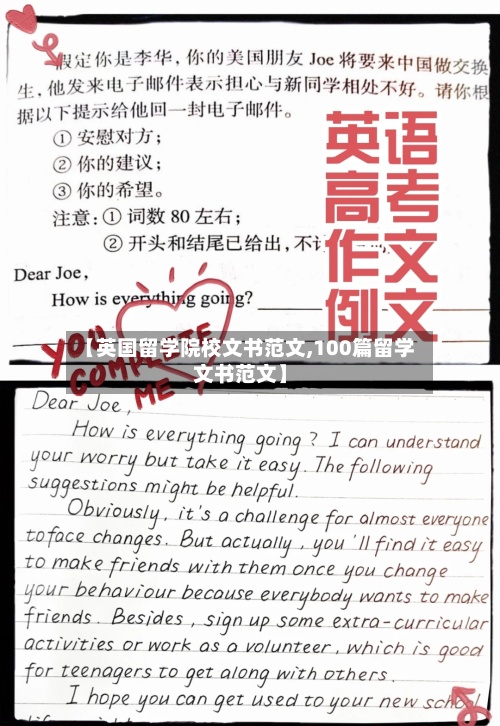 假定你是李华，你的美国朋友 Joe 将要来中国做交换
生，他发来电子邮件表示担心与新同学相处不好。请你根
据以下提示给他回一封电子邮件。
① 安慰对方；
② 你的建议；
③ 你的希望。
注意：① 词数 80 左右；
② 开头和结尾已给出，不
英语
高考
作文
例文
Dear Joe，
How is everything going?
YOU
COMPLETE
ME
【英国留学院校文书范文,100篇留学
文书范文】
Dear Joe,
How is everything going? I can understand
your worry but take it easy. The following
suggestions might be helpful.
Obviously, it's a challenge for almost everyone
to face changes. But actually, you'll find it easy
to make friends with them once you change
your behaviour because everybody wants to make
friends. Besides, sign up some extra-curricular
activities or work as a volunteer, which is good
for teenagers to get along with others.
I hope you can get used to your new school